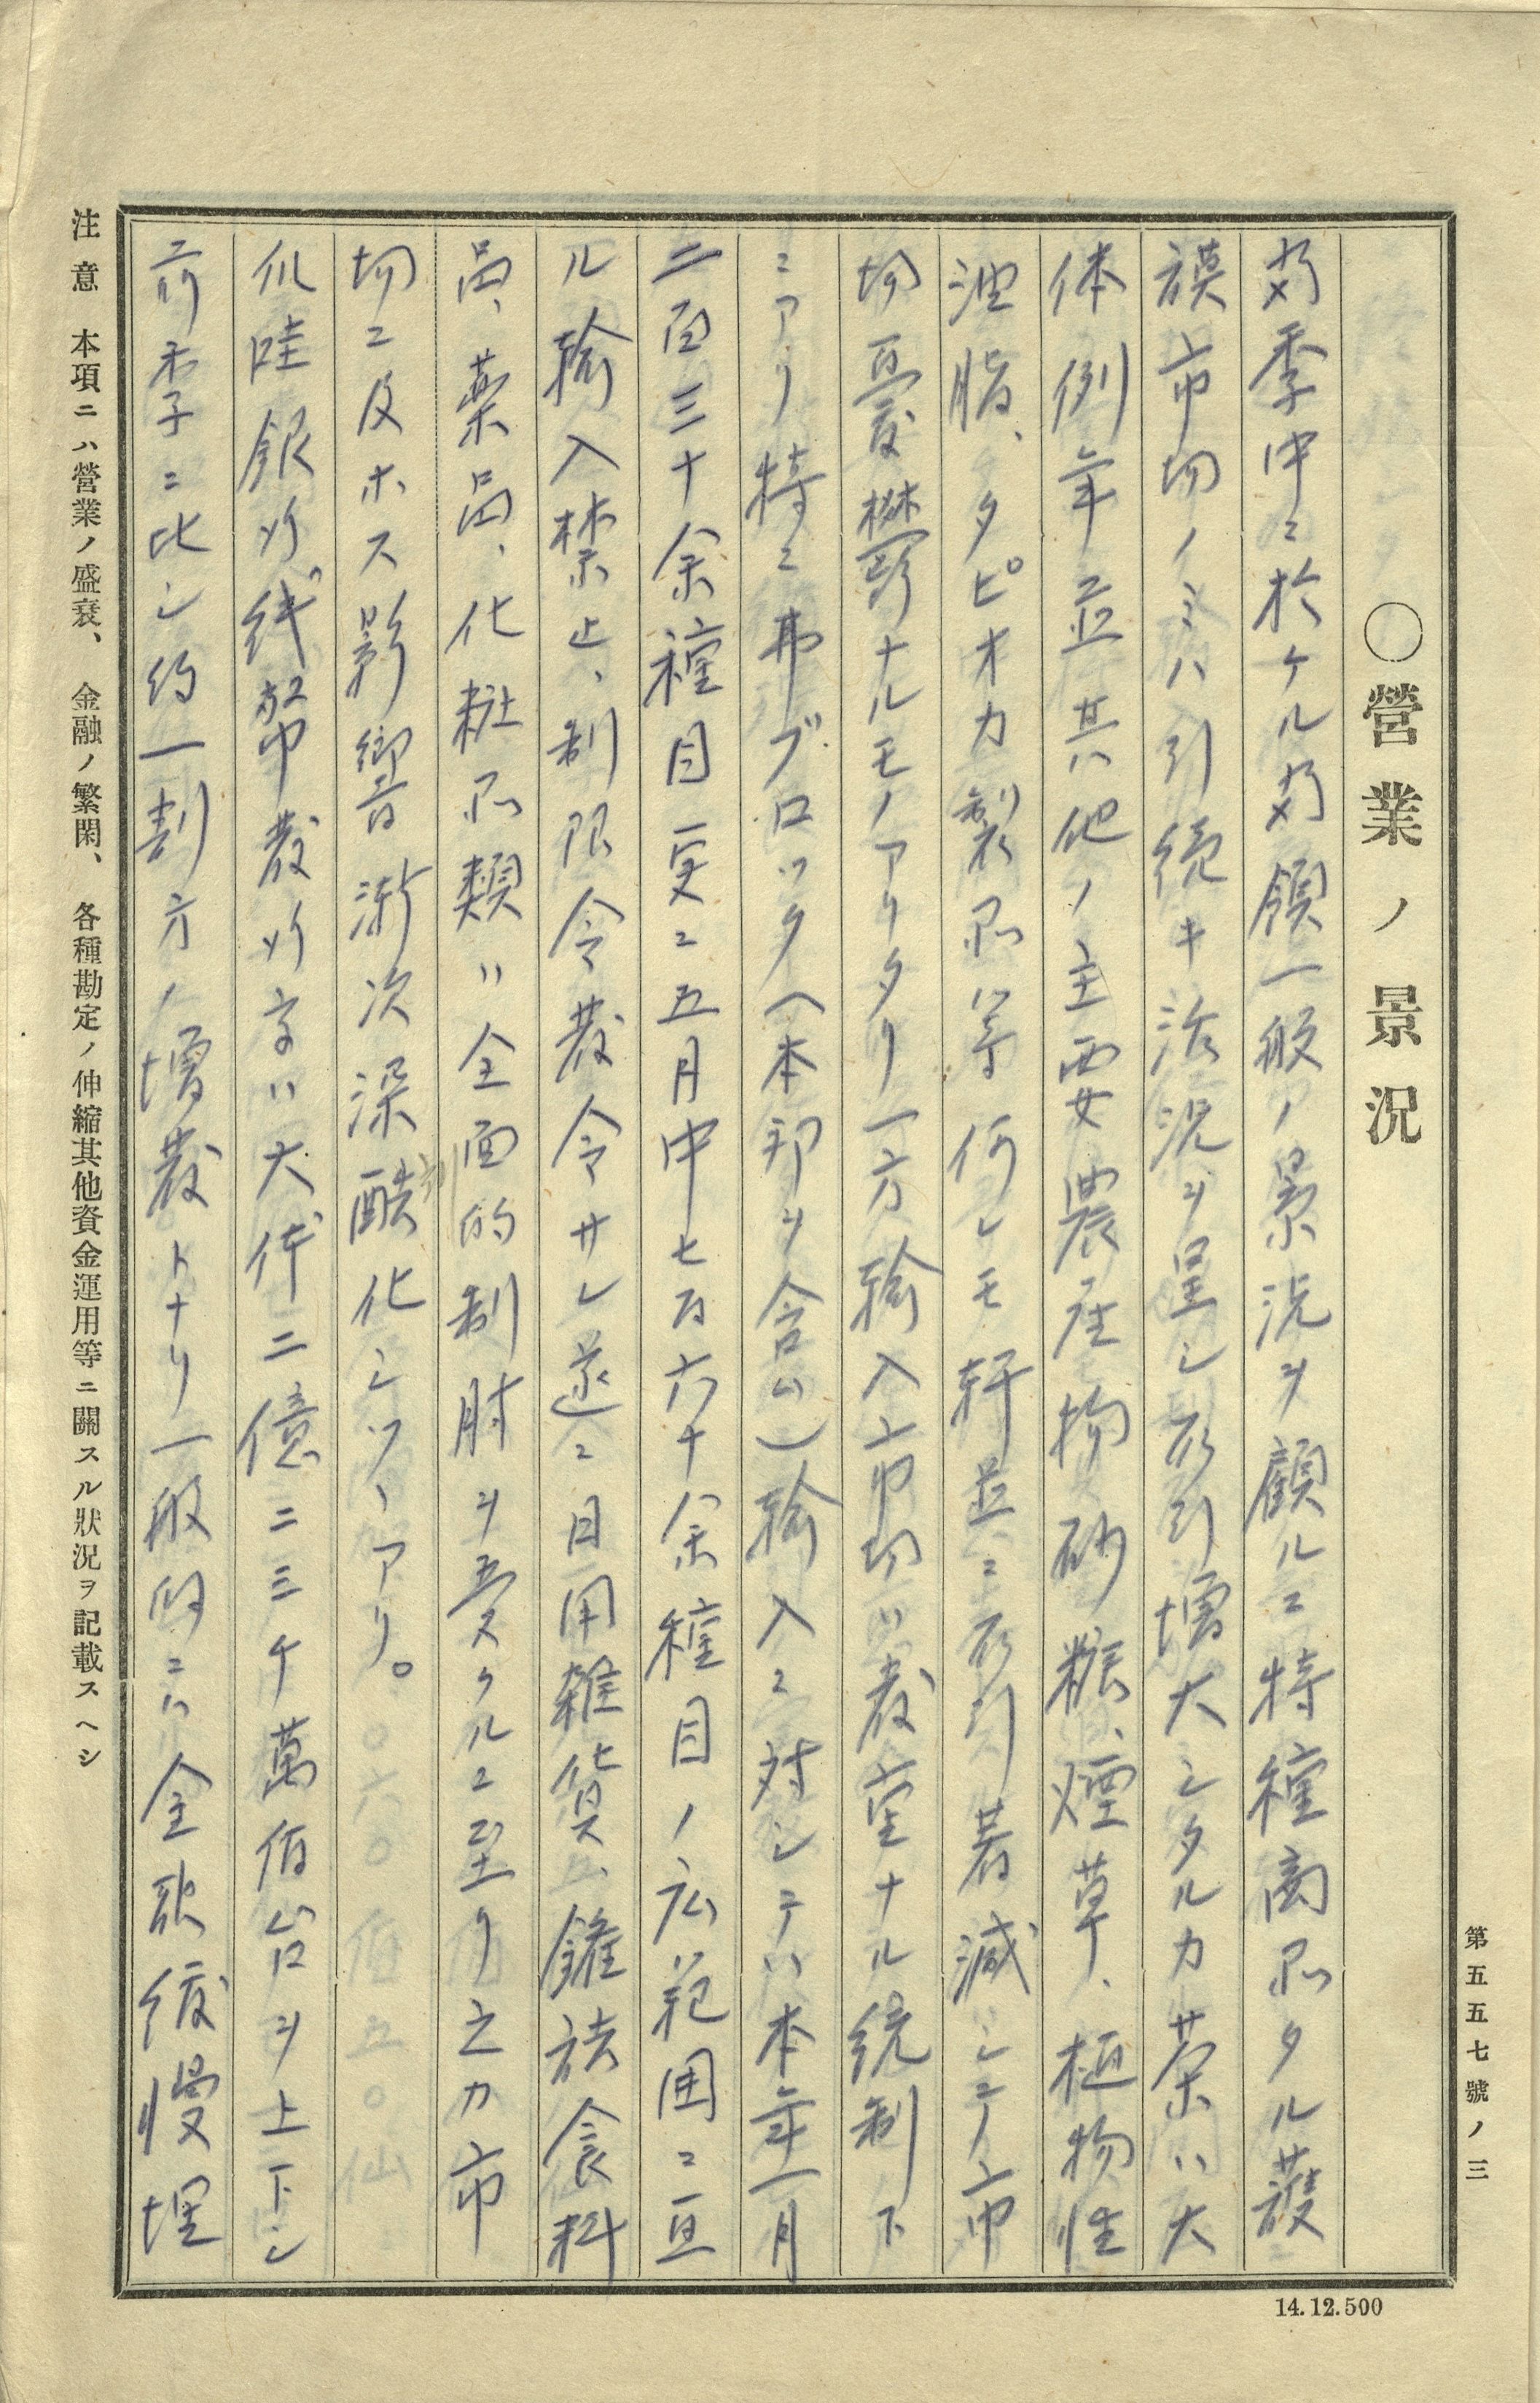 第五五七號ノ三
○營業ノ景況
当季中ニ於ケル当領一般ノ景況ヲ顧ルニ特種商品タル護
謨市場ノミハ引続キ活況ヲ呈シ取引増大シタルカ茶ハ大
体例年並其他ノ主要農産物砂糖、煙草、植物性
油脂、タピオカ製品等何レモ軒並ニ取引著減シテ市
場憂欝ナルモノアリタリ一方輸入市場ハ厳重ナル統制下
ニアリ特ニ弗ブロック(本邦ヲ含ム)輸入ニ対シテハ本年一月
二百三十余種目更ニ五月中七百六十余種目ノ広範囲ニ亘
ル輸入禁止、制限令発令サレ遂ニ日用雑貨、鑵詰食料
品、薬品、化粧品類ハ全面的制肘ヲ受クルニ至リ之カ市
場ニ及ホス影響漸次深酷化シツヽアリ。
爪哇銀行紙幣発行高ハ大体二億二三千萬盾台ヲ上下シ
前季ニ比シ約一割方ノ増発トナリ一般的ニハ金融緩慢裡
注意 本項ニハ營業ノ盛衰、金融ノ繁閑、各種勘定ノ伸縮其他資金運用等ニ關スル狀況ヲ記載スヘシ
14.12.500